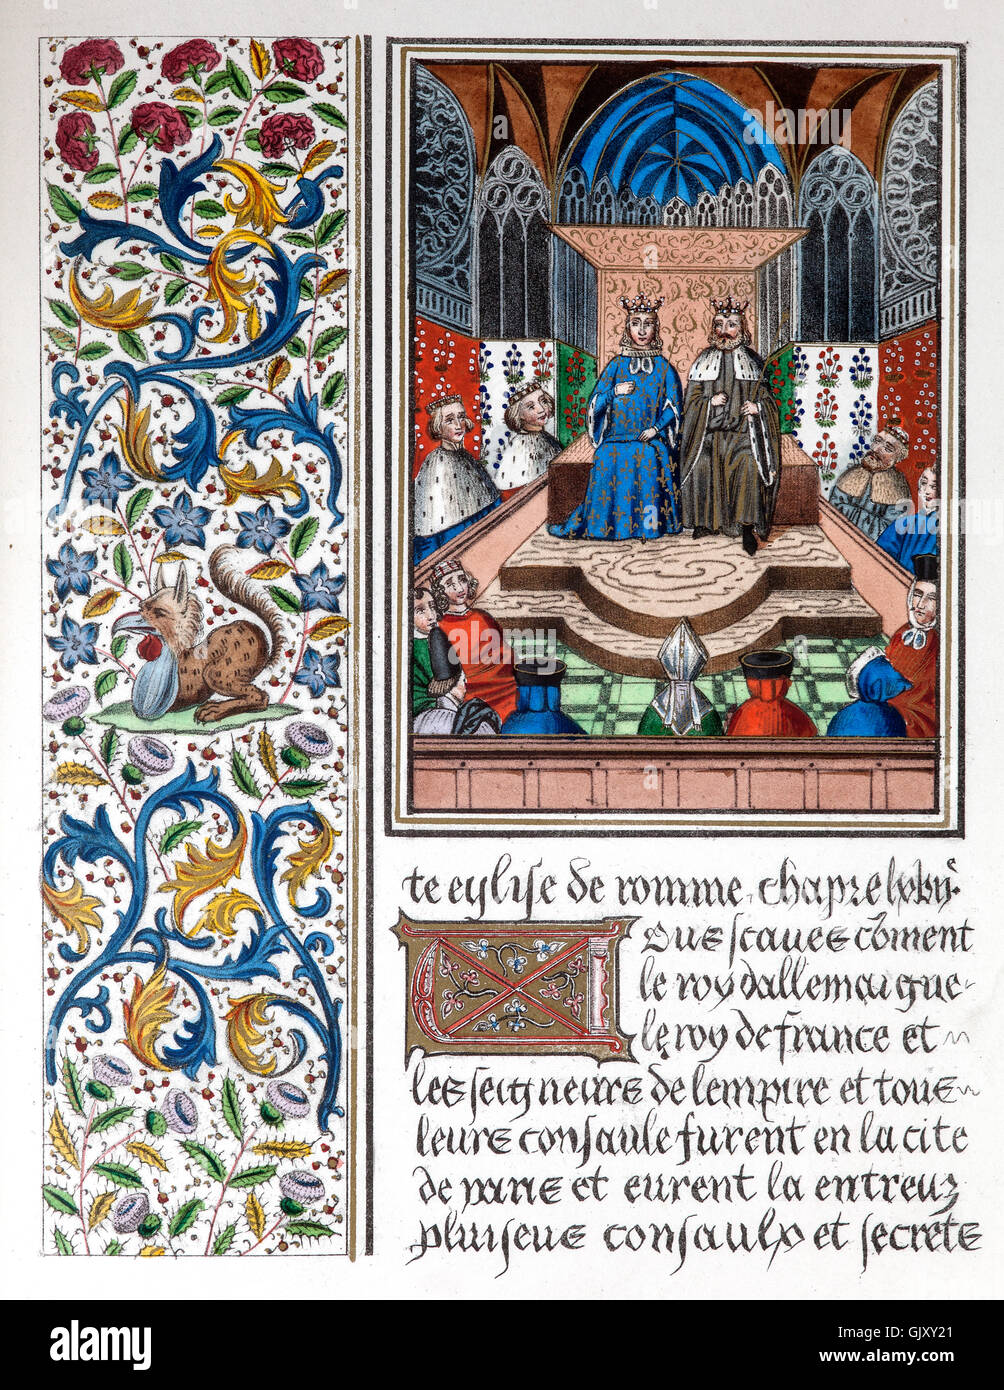 te eglise de romme. chapre lxviiie.
Vous scaues cōment
le roy dallemaigne
le roy de france et
les seigneurs de lempire et tous
leurs consaulx furent en la cite
de paris et eurent la entreulz
pluiseurs consaulx et secrets
a
alamy stock photo
GJXY21
www.alamy.com